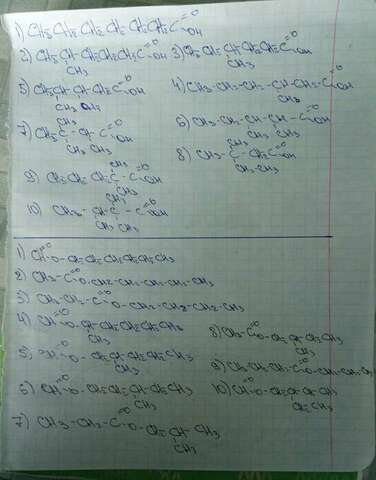 1) CH3 CH2 CH2 CH2 CH2 CH2 C=O OH
2) CH3 CH CH2 CH2 CH2 C=O OH 3) CH3 CH2 CH CH2 CH2 C=O OH
CH3 CH3
5) CH3 CH CH CH2 C=O OH 4) CH3-CH2-CH2-CH-CH2-C=O OH
CH3 CH3 CH3
7) CH3 C - CH - C=O OH 6) CH3-CH2-CH-CH-C=O OH
CH3
CH3 CH3 CH3 CH3
8) CH3-C-CH2 C=O OH
9) CH3 CH2 CH2 C - C=O OH
CH3
CH3
10) CH3-CH-C-C=O OH
CH3
CH3 CH3
1) CH=O-O-CH2 CH2 CH2 CH2 CH2 CH3
2) CH3-C=O-O-CH2-CH2-CH2-CH2-CH3
3) CH3-CH2-C=O-O-CH2-CH2-CH2-CH3
4) CH=O-O-CH CH2 CH2 CH2 CH3
CH3
8) CH3-C=O-O-CH2 CH2 CH CH3
CH3
5) CH=O-O-CH2 CH CH2 CH2 CH3
CH3
9) CH3 CH2 CH2-C=O-O-CH2-CH2-CH3
6) CH=O-O-CH2 CH2 CH CH2 CH3
CH3
10) CH=O-O-CH2 CH2 CH CH3
CH2 CH3
7) CH3-CH2-C=O-O-CH2 CH-CH3
CH3